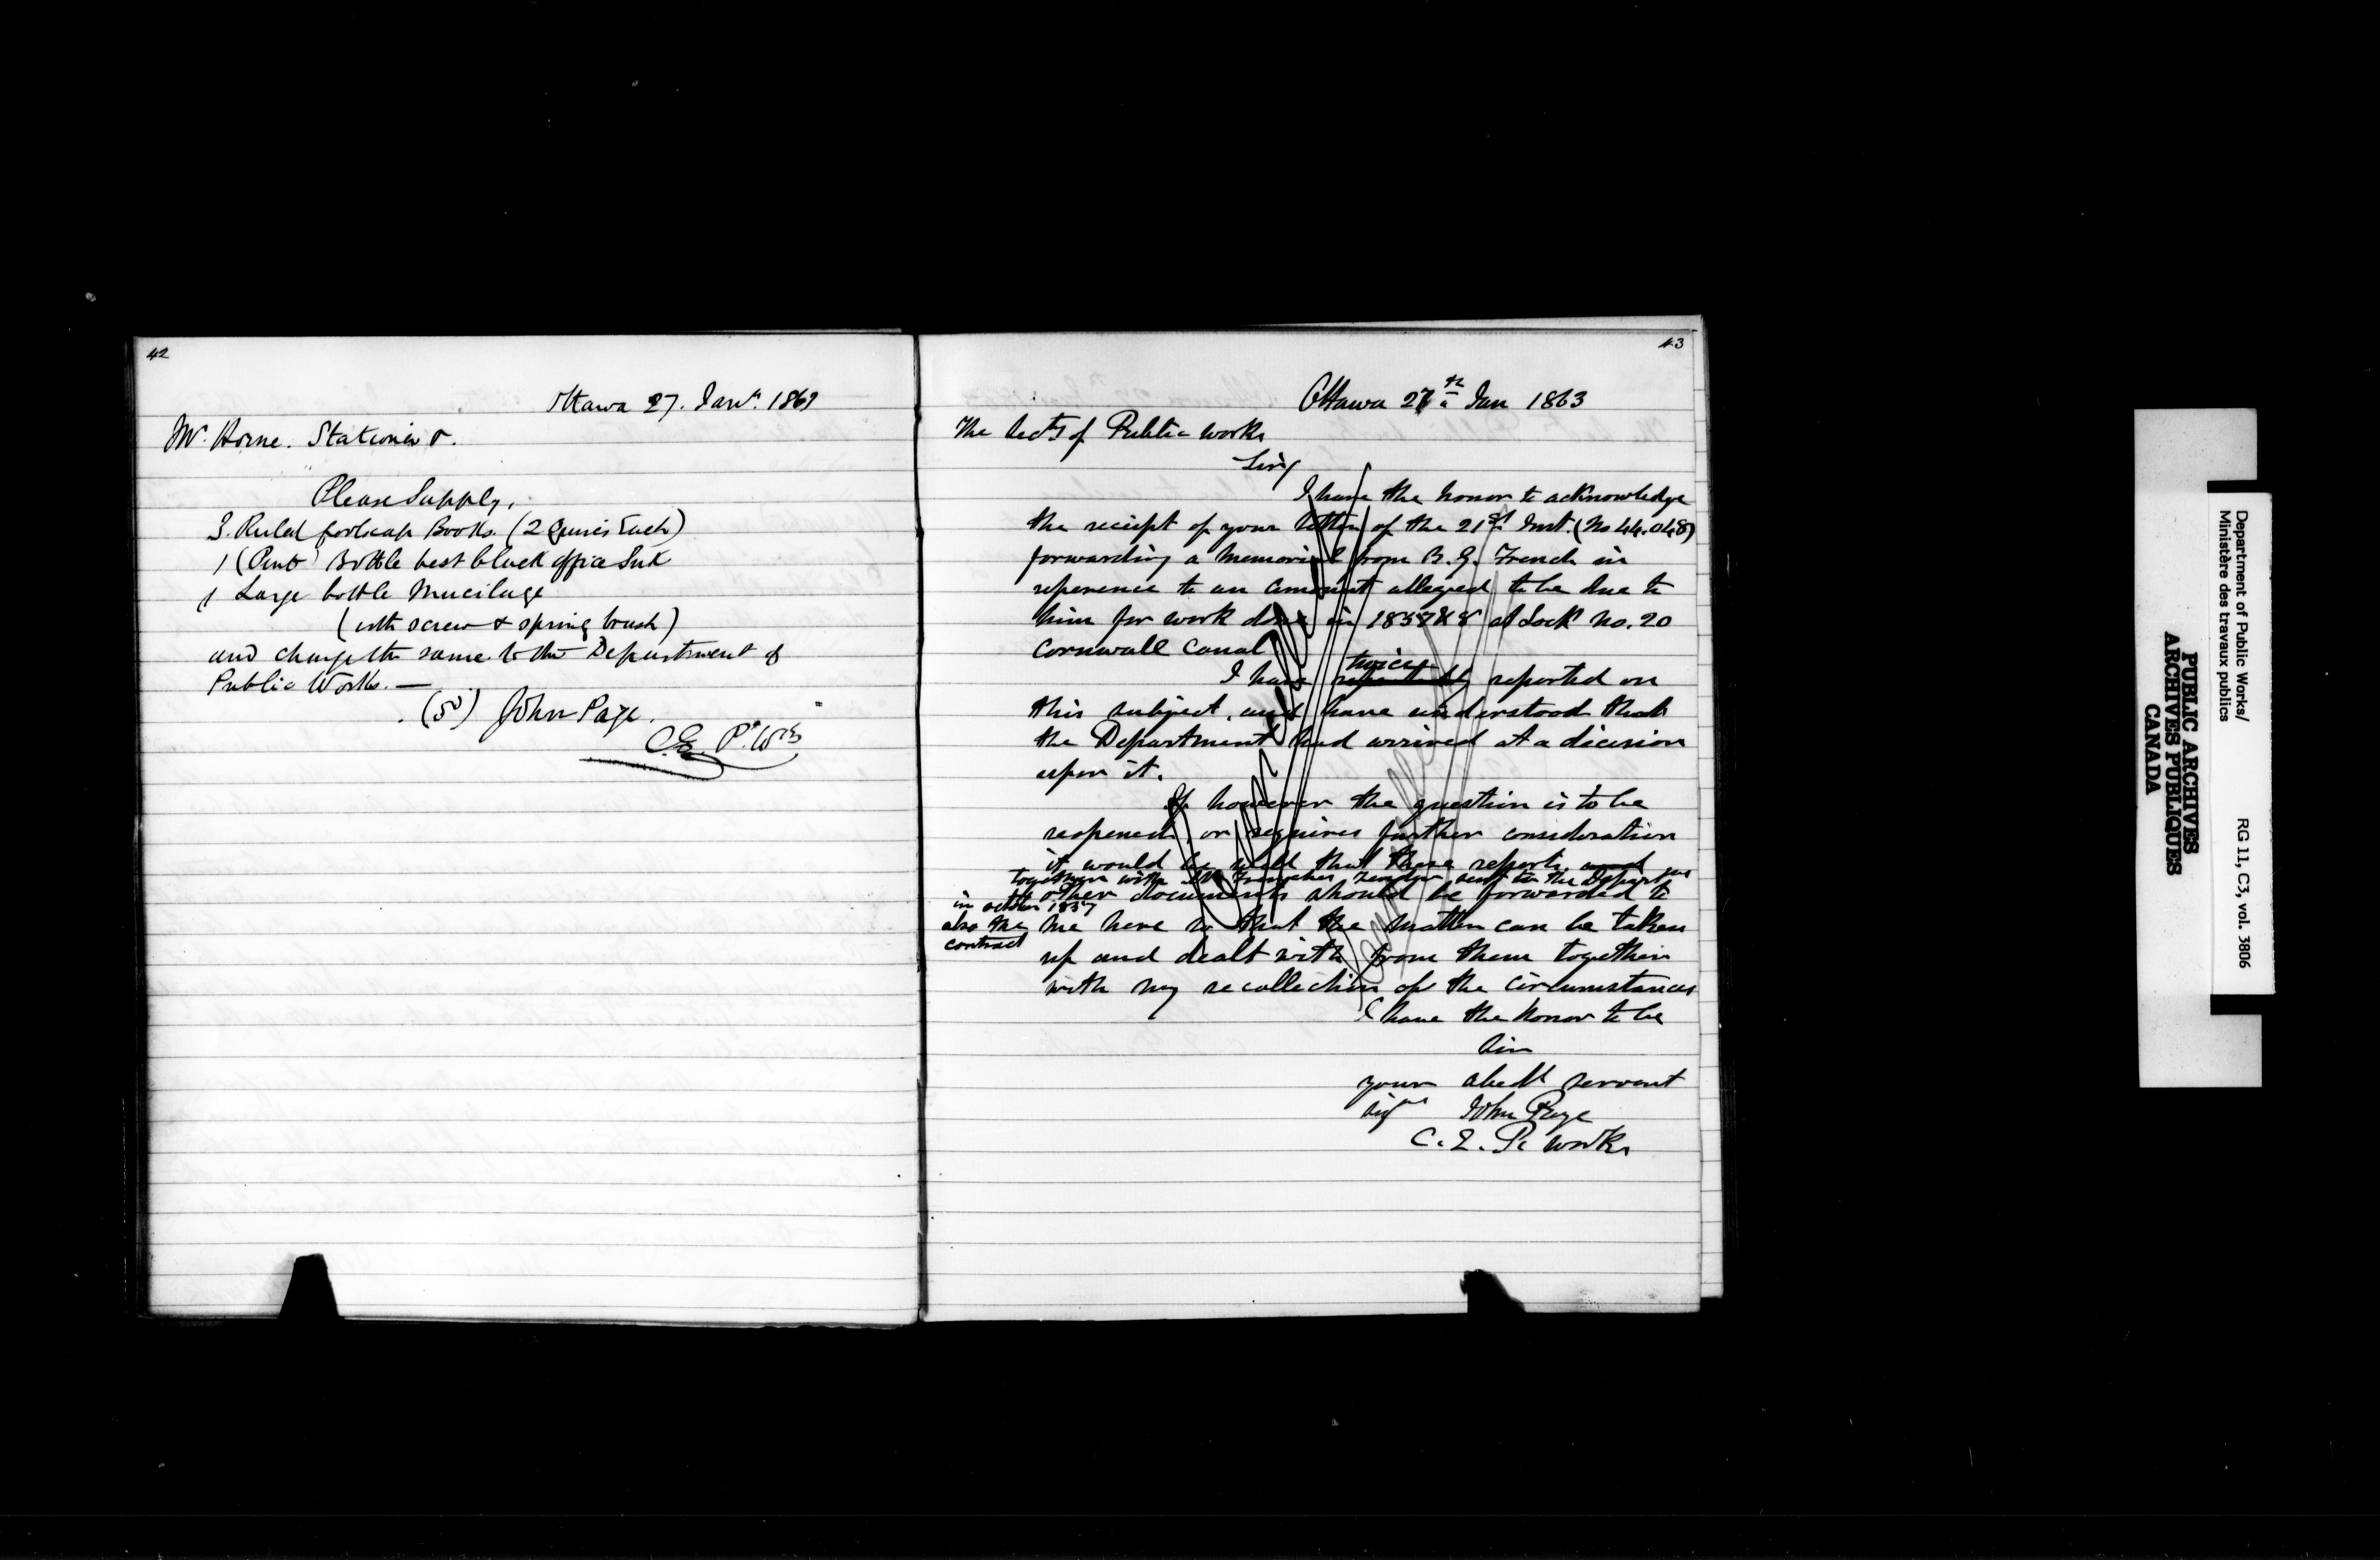 42
Ottawa 27. Jany. 1863
Mr. Horne. Stationer &.
Please Supply,
3. Ruled foolscap Books. (2 Quires Each)
1 (Pint) Bottle best black office Ink
1 Large bottle Mucilage
(with screw & spring brush)
and charge the same to the Department of
Public Works. —
(sd) John Page.
C.E. P. Wks
43
Ottawa 27th Jan 1863
The Secty of Public Works
Sir/
I have the honor to acknowledge
the reciept of your letter of the 21st Inst. (No 44.048)
forwarding a memorial from B. G. French in
reference to an amount alleged to be due to
him for work done in 1857 & 8 at Lock No. 20
Cornwall Canal
twice
I have repeatedly reported on
this subject, and have understood that
the Department had arrived at a decision
upon it.
If however the question is to be
reopened or requires further consideration
it would be well that these reports and
together with Mr Frenches tender sent to the Departmt
in october 1857
other documents should be forwarded to
also the
contract
me here so that the matter can be taken
up and dealt with from them together
with my recollection of the circumstances
I have the honor to be
Sir
your obedt servant
Sigd John Page
C. E. P. Works
Department of Public Works/
Ministère des travaux publics
RG 11, C3, vol. 3806
PUBLIC ARCHIVES
ARCHIVES PUBLIQUES
CANADA